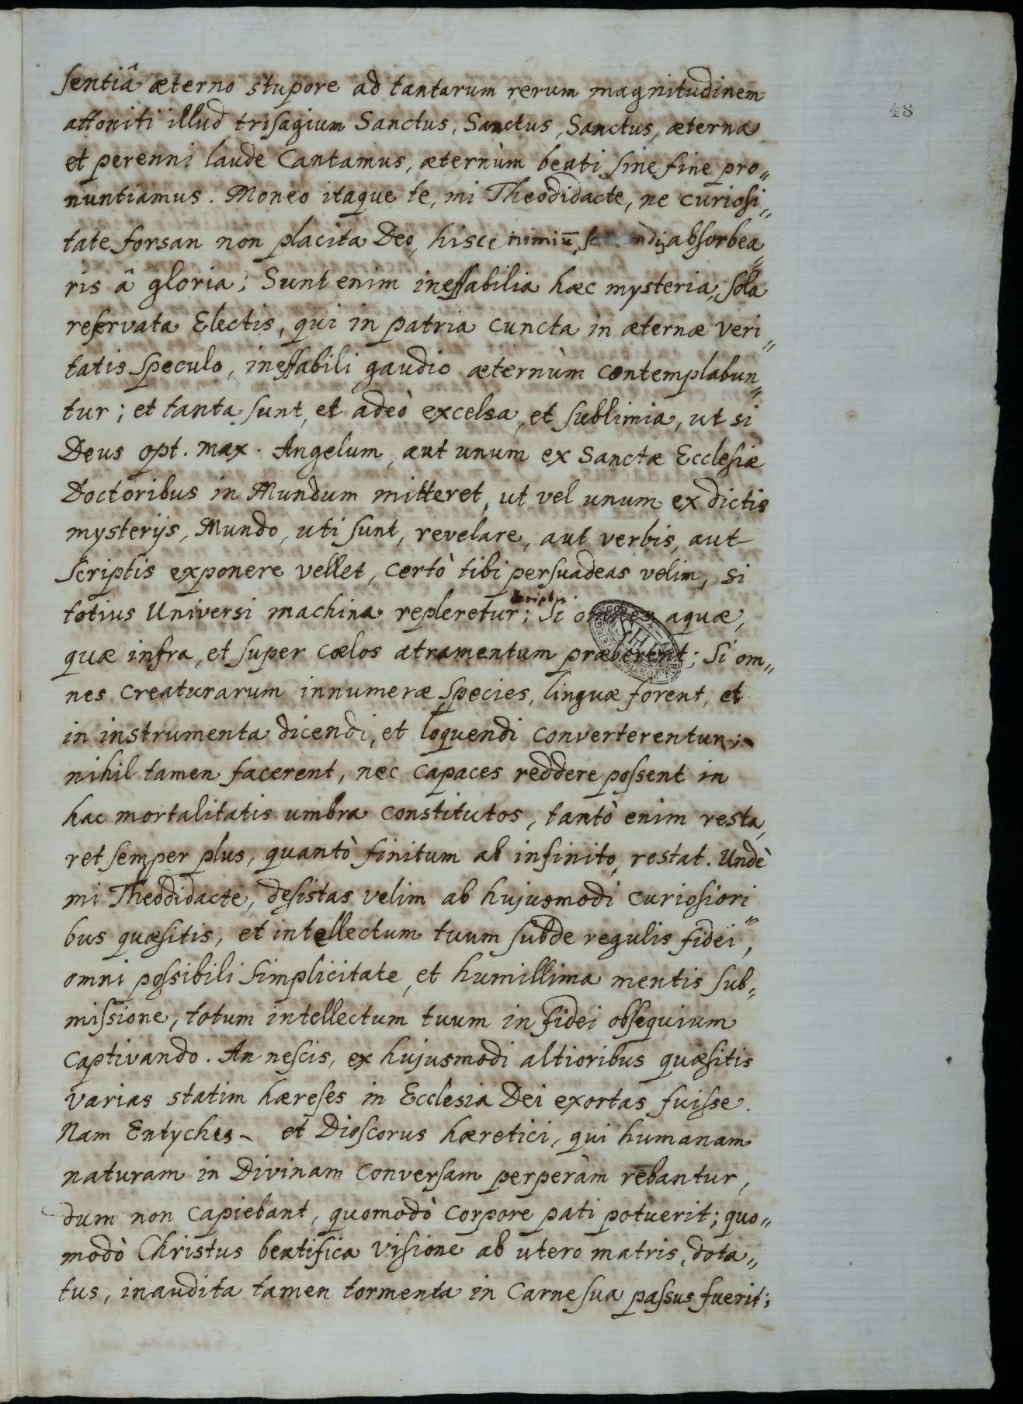 48
sentiâ æterno stupore ad tantarum rerum magnitudinem
attoniti illud trisagium Sanctus, Sanctus, Sanctus, æterna
et perenni laude Cantamus, æternùm beati sine fine pro„
nuntiamus. Moneo itaque te, mi Theodidacte, ne curiosi„
tate forsan non placita Deo, hisce nimiũ absorbea„
ris â gloria; Sunt enim ineffabilia hæc mysteria, sola
reservata Electis, qui in patria cuncta in æternæ veri„
tatis speculo, ineffabili gaudio æternùm contemplabun„
tur; et tanta sunt, et adeò excelsa, et sublimia, ut si
Deus opt. max. Angelum, aut unum ex Sanctæ Ecclesiæ
Doctoribus in Mundum mitteret, ut vel unum ex dictis
mysterijs, Mundo, uti sunt, revelare, aut verbis, aut
scriptis exponere vellet, certò tibi persuadeas velim, si
totius Universi machina scriptis repleretur; Si omnes aquæ,
quæ infra, et super cœlos atramentum præberent; Si om„
nes creaturarum innumeræ species, linguæ forent, et
in instrumenta dicendi, et loquendi converterentur;
nihil tamen facerent, nec capaces reddere possent in
hac mortalitatis umbra constitutos, tantò enim resta„
ret semper plus, quantò finitum ab infinito restat. Undè
mi Theodidacte, desistas velim ab hujusmodi curiosiori„
bus quæsitis, et intellectum tuum subde regulis fidei,
omni possibili simplicitate, et humillima mentis sub„
missione, totum intellectum tuum in fidei obsequium
captivando. An nescis, ex hujusmodi altioribus quæsitis
varias statim hæreses in Ecclesia Dei exortas fuisse.
Nam Entyches et Dioscorus hæretici, qui humanam
naturam in Divinam conversam perperàm rebantur,
dum non capiebant, quomodò corpore pati potuerit; quo„
modò Christus beatifica visione ab utero matris dota„
tus, inaudita tamen tormenta in Carne sua passus fuerit;